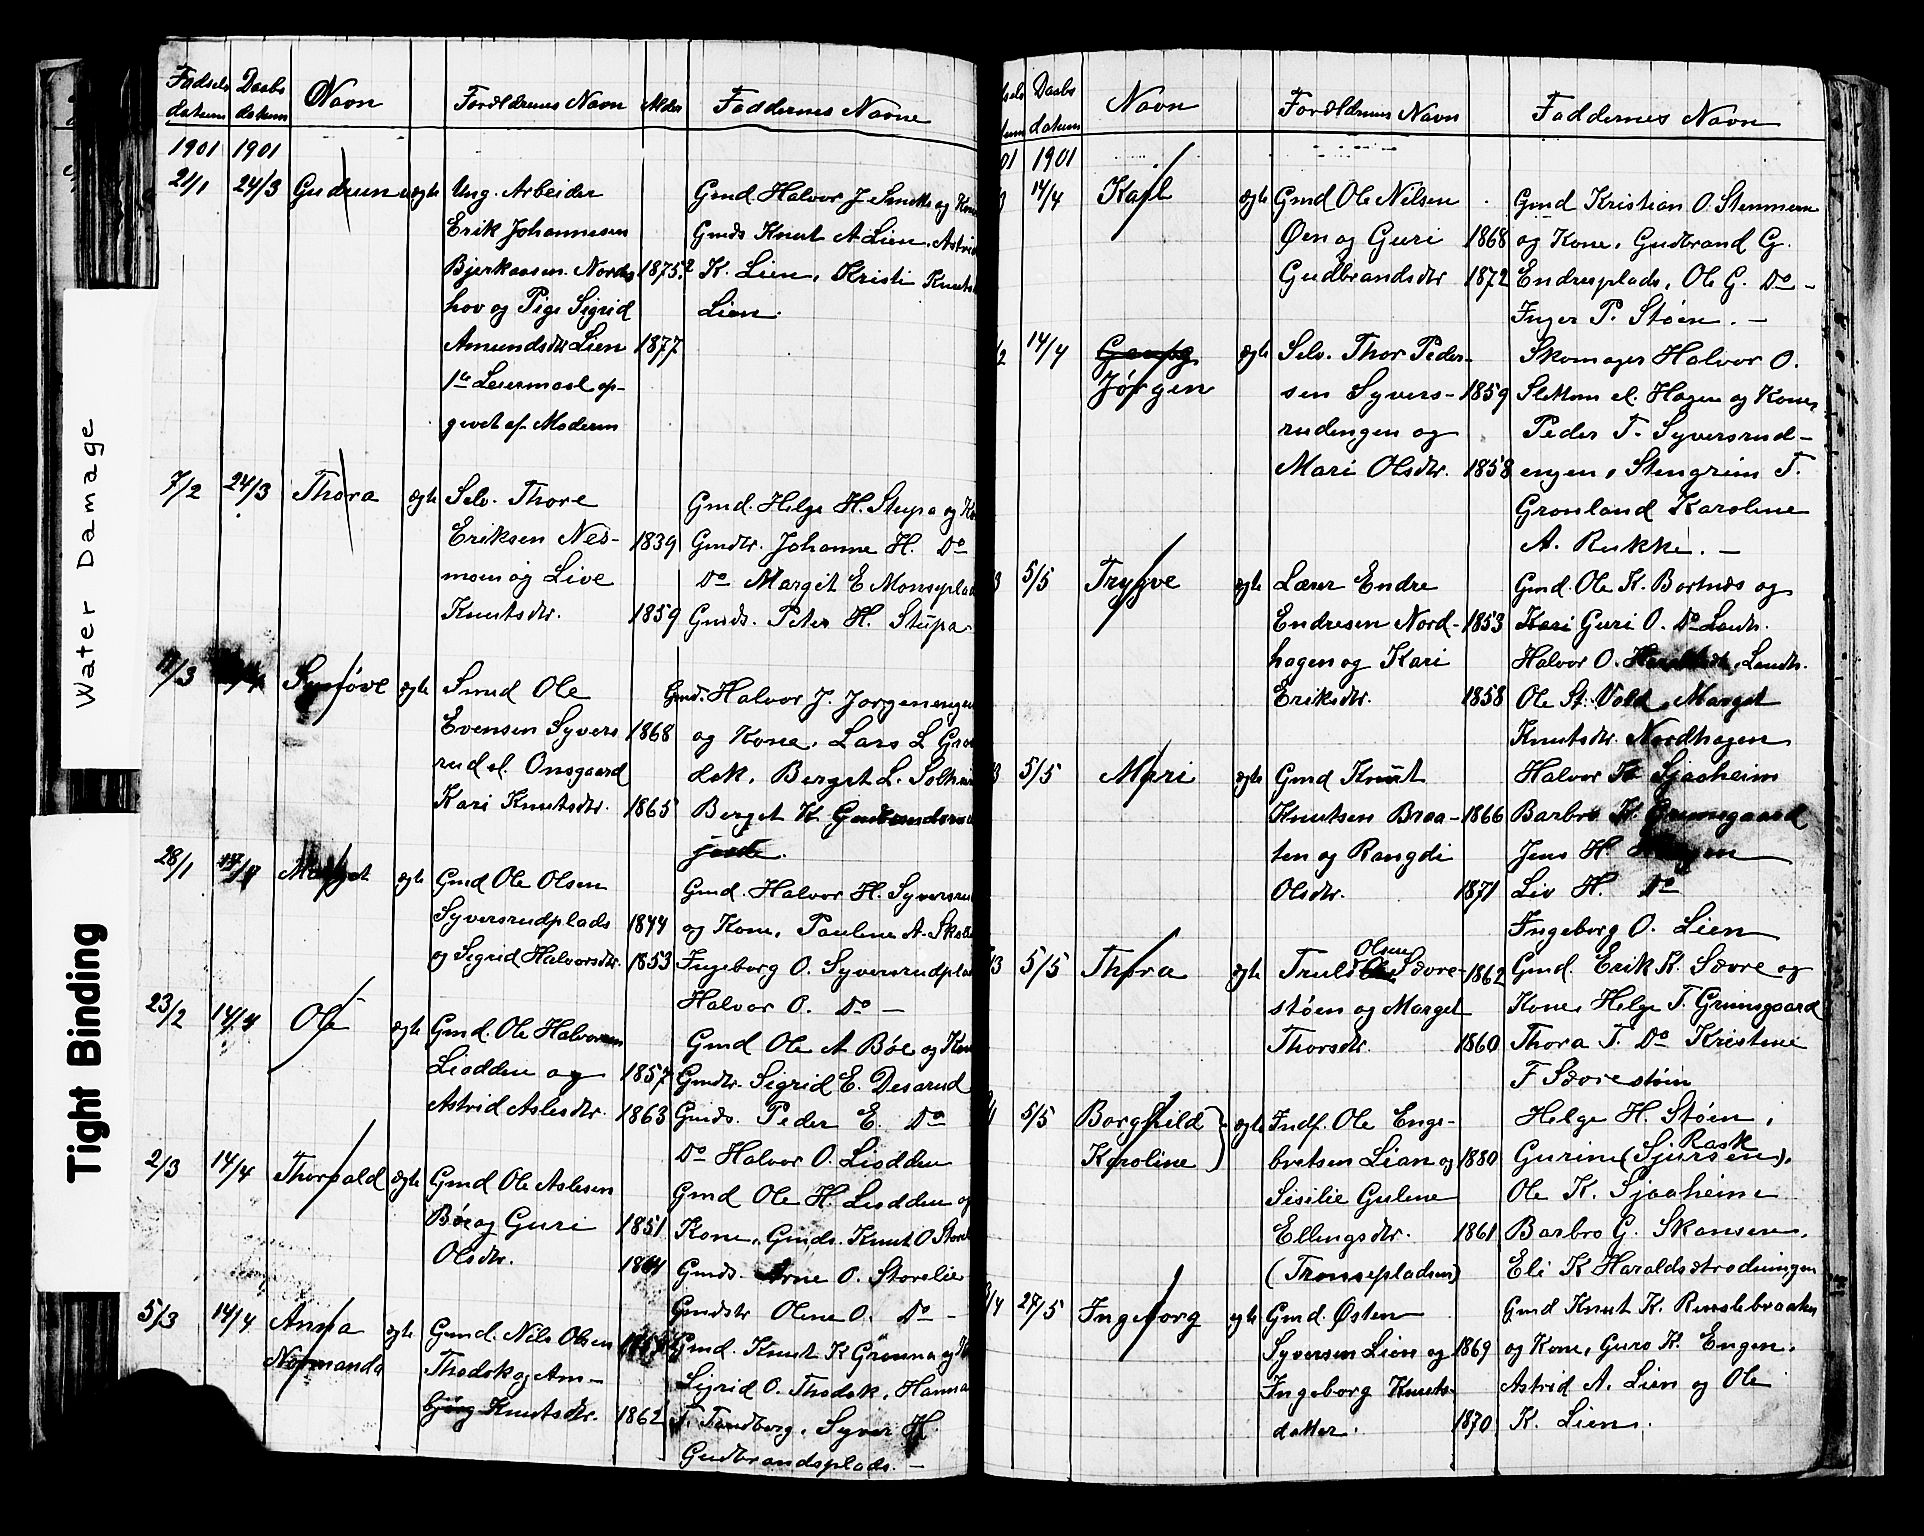 Water Damage
Tight Binding
Fødsels datum Daabs datum Navn Forældrenes Navn Alder Faddernes Navne
1901 1901
21/1 24/3 Gudrun uægte Ung. Arbeider Gmd. Halvor J.
Erik Johannesen Gmds Knut A Lien, Astrid
Bjerkaasen. Nords 1875? K. Lien, Kristi Knuts
hov og Pige Sigrid Lien.
Amundsdtr Lien 1877
1ste Leiermaal op-
givet af Moderen
7/2 24/3 Thora ægte Selv. Thore Gmd. Helge H. Stupa og
Eriksen Nes- 1839 Gmdtr. Johanne H. Do
moen og Live Do Margit E Monsplad
Knutsdtr. 1859 Gmds. Peter H. Stupa
/3 Synøve ægte Smed Ole Gmd. Halvor J. Jorgenengen
Evensen Syvers 1868 og Kone, Lars L
rud el. Onsgaard dok, Berget L.
Kari Knutsdtr. 1865 Berget K
28/1 /4 Marget ægte Gmd Ole Olsen Gmd. Halvor H. Syversru
Syversrudplads 1844 og Kone, Pauline A.
og Sigrid Halvorsdtr. 1853 Ingeborg O. Syversrudplad
Halvor O. Do —
23/2 14/4 Ole ægte Gmd. Ole Halvorsen Gmd Ole A Bøe og
Liodden og 1857 Gmdtr. Sigrid E. Desarud
Astrid Aslesdtr. 1863 Gmds. Peder E. Do
Do Halvor O. Liodden
2/3 14/4 Thorvald ægte Gmd Ole Aslesen Gmd Ole H. Liodden og
Bøe og Guri 1851 Kone, Gmds. Knut O
Olsdtr. Gmds. Arne O. Storelie
Gmdtr Oline O. Do —
5/3 14/4 Anna ægte Gmd. Nils Olsen Gmd. Knut K Grønna og
Normanda Thodok og Am- Sigrid O. Thodok, Hanna
bjørg Knutsdtr. 1862 T. Tandberg, Syver H.
Gudbrandsplads. —
datum Daabs datum Navn Forældrenes Navn Faddernes Navn
01 1901
3 14/4 Karl ægte Gmd Ole Nilsen Gmd Kristian O.
Øen og Guri 1868 og Kone, Gudbrand G.
Gudbrandsdtr 1872 Endresplads, Ole G. Do —
Inger P. Støen. —
/2 14/4 Jørgen ægte Selv. Thor Peder- Skomager Halvor O.
sen Syvers- 1859 Sletton el. Hagen og Kone,
rudengen og Peder T. Syversrud-
Mari Olsdtr. 1858 engen, Stengrim T.
Grønland Karoline
A. Rukke. —
3 5/5 Trygve ægte Lærer Endre Gmd. Ole K. Bortnes og
Endresen Nord- 1853 Kari Guri O. Do Landh.
hagen og Kari Halvor O. Landh.
Eriksdtr. 1858 Ole St. Vold, Marget
Knutsdtr. Nordhagen
3 5/5 Mari ægte Gmd Knut Halvor K Sjaaheim
Knutsen Braa- 1866 Barbro K. Grimsgaard
ten og Rangdi Jens H.
Olsdtr. 1871 Liv H. Do
Ingeborg O. Lien
/3 5/5 Thora ægte Truls Olsen Sævre- 1862 Gmd. Erik K. Sævre og
støen og Marget Kone, Helge T. Grimsgaard
Thorsdtr. 1860 Thora T. Do Kristine
F Sævrestøen
5/5 Borghild Karoline } ægte Indf. Ole Enge- Helge H. Støen,
bretsen Lian og 1880 Gurine (Sjursen) Rask,
Sisilie Guline Ole K. Sjaaheim
Ellingsdtr. 1861 Barbro G. Skansen,
(Tronsepladsen) Eli K
/4 27/5 Ingeborg ægte Gmd. Østen Gmd Knut K. Rinslebraaten
Syversen Lien og 1869 og Kone, Guro K. Engen,
Ingeborg Knuts- Astrid A. Lien og Ole
datter. 1870 K. Lien.